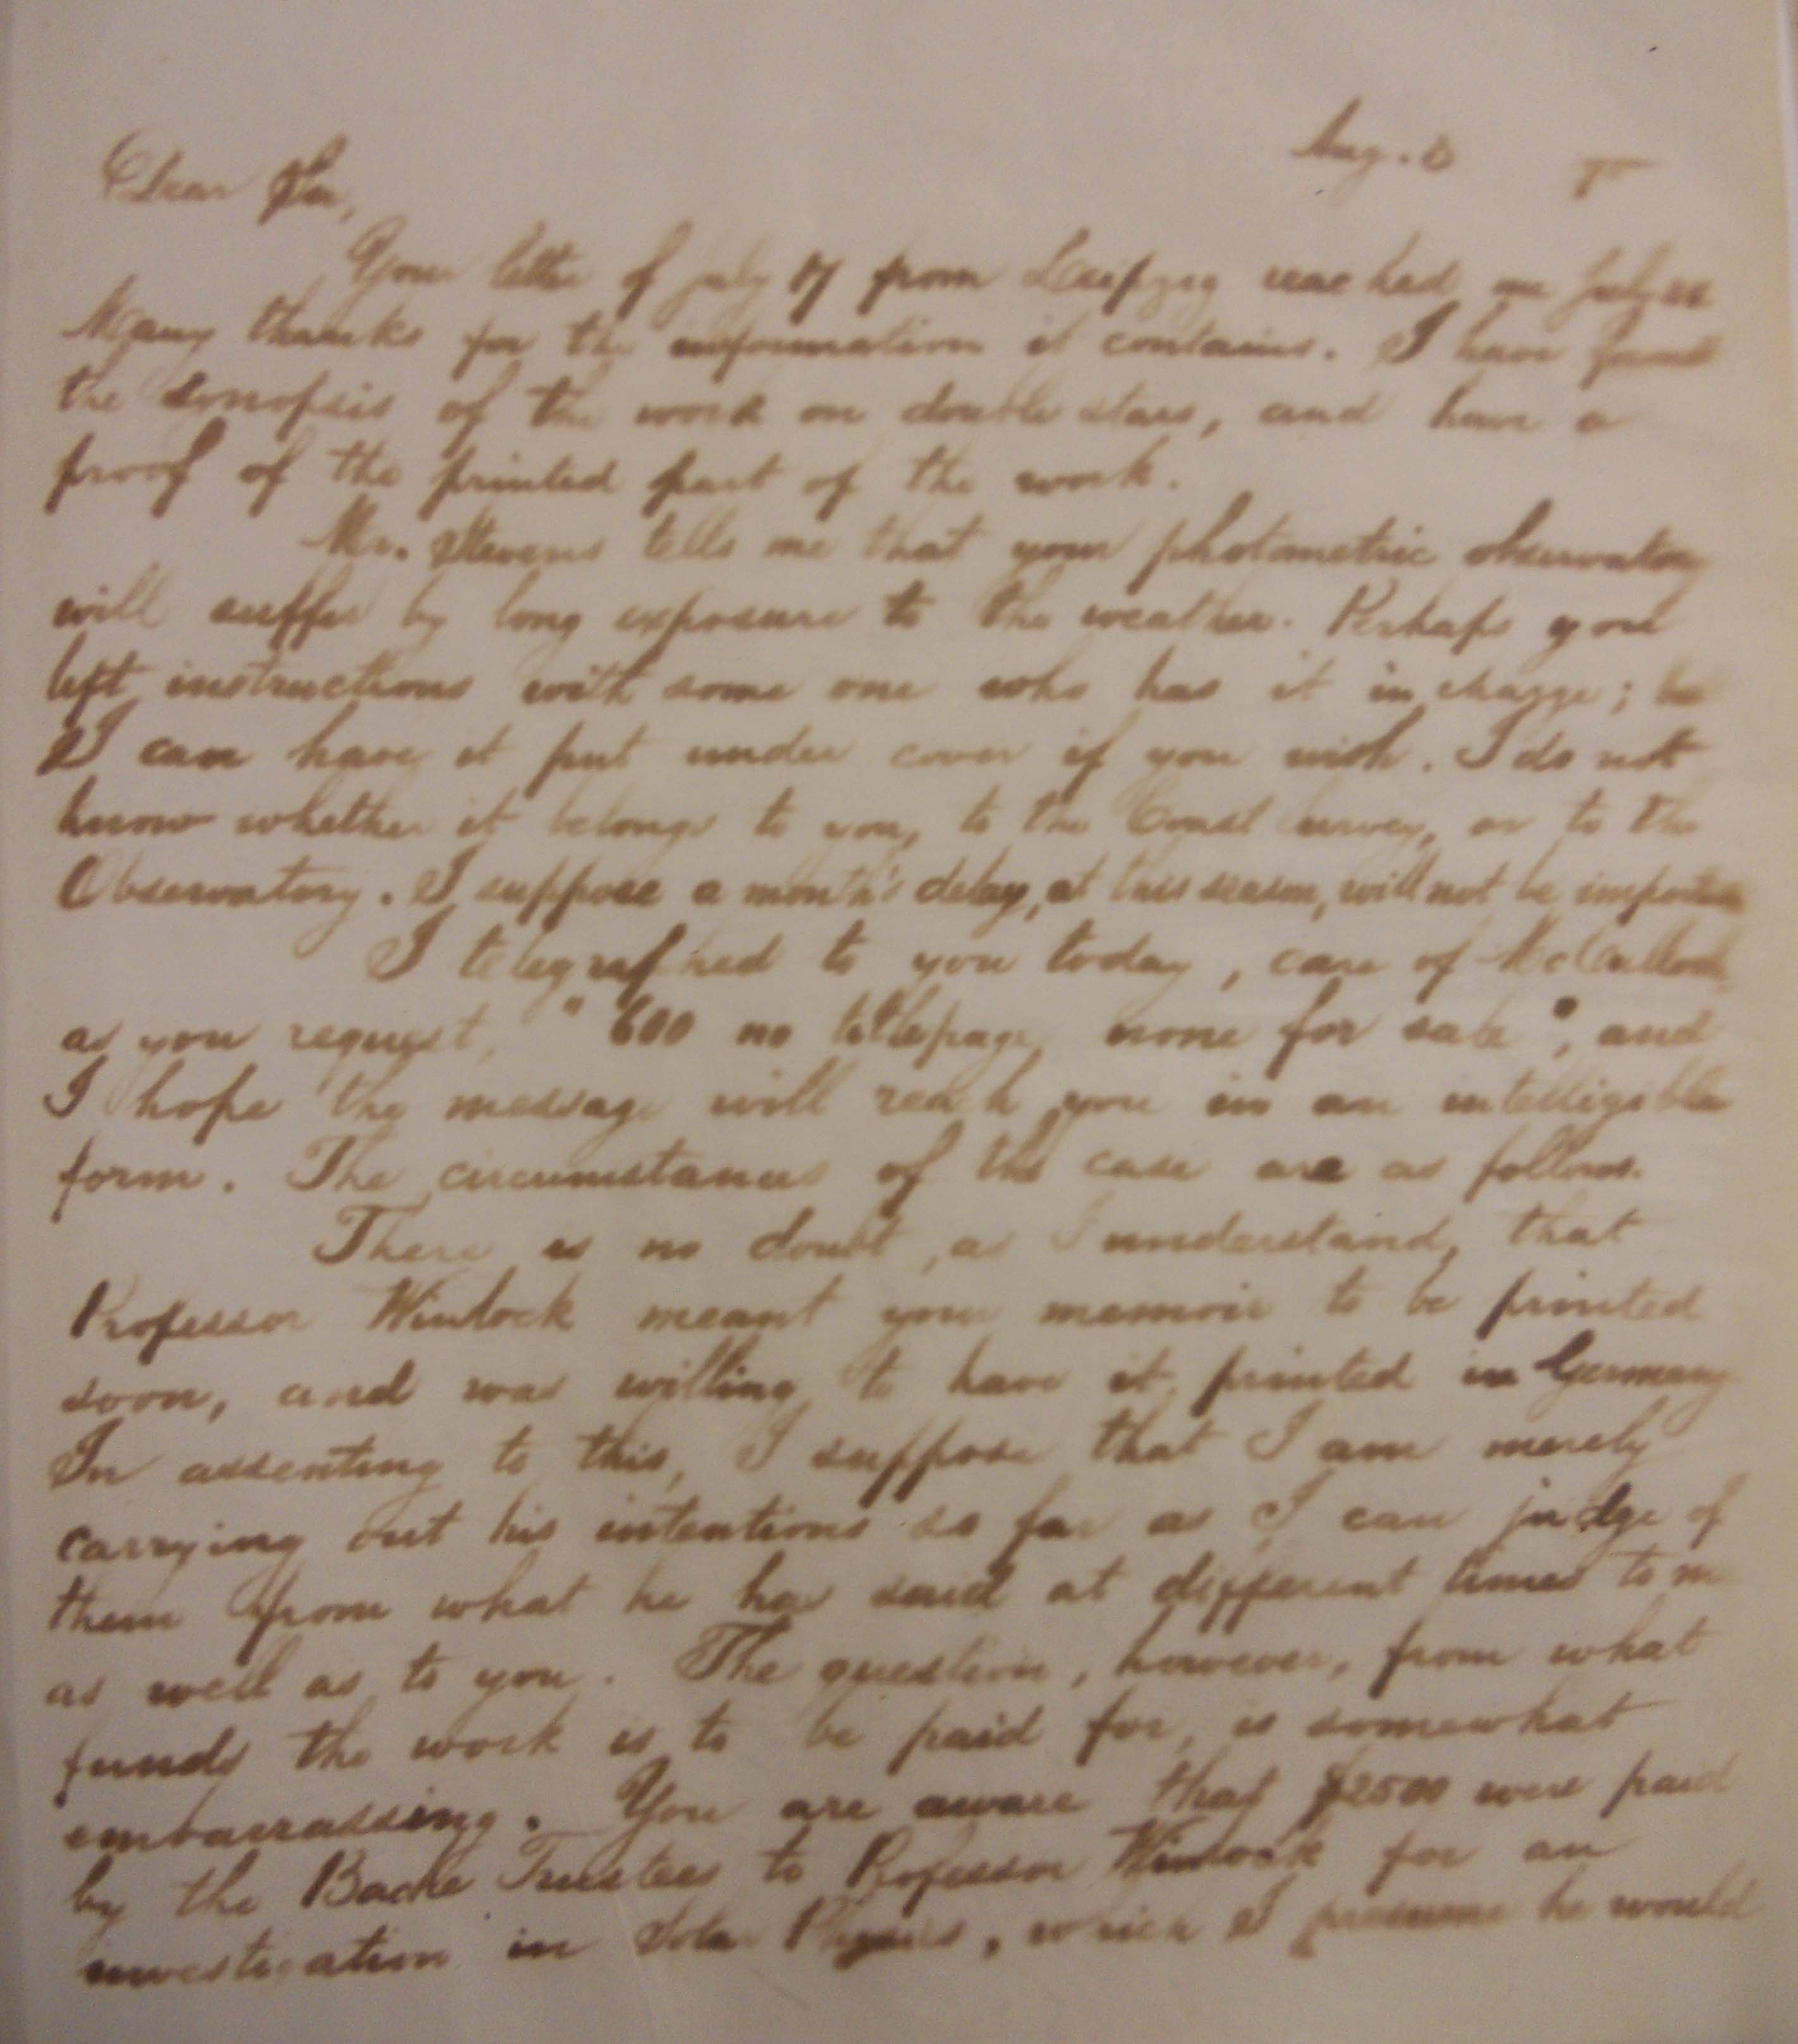 Aug.
Dear Sir,
Your letter of July 17 from Leipzig reached me July
Many thanks for the information it contains. I have found
the synopsis of the work on double stars, and have a
proof of the printed part of the work.
Mr. Stevens tells me that your photometric observatory
will suffer by long exposure to the weather. Perhaps you
left instructions with some one who has it in charge;
I can have it put under cover if you wish. I do not
know whether it belongs to you, to the Coast Survey, or to the
Observatory. I suppose a month's delay, at this season, will not be important
I telegraphed to you today, care of McCulloch
as you request, "600 no titlepage, none for sale", and
I hope the message will reach you in an intelligible
form. The circumstances of the case are as follows.
There is no doubt, as I understand, that
Professor Winlock meant your memoir to be printed
soon, and was willing to have it printed in Germany
In assenting to this, I suppose that I am merely
carrying out his intentions so far as I can judge of
them from what he has said at different times to me
as well as to you. The question, however, from what
funds the work is to be paid for, is somewhat
embarrassing. You are aware that $2500 were paid
by the Bache Trustees to Professor Winlock for an
investigation in Solar Physics, which I presume he would